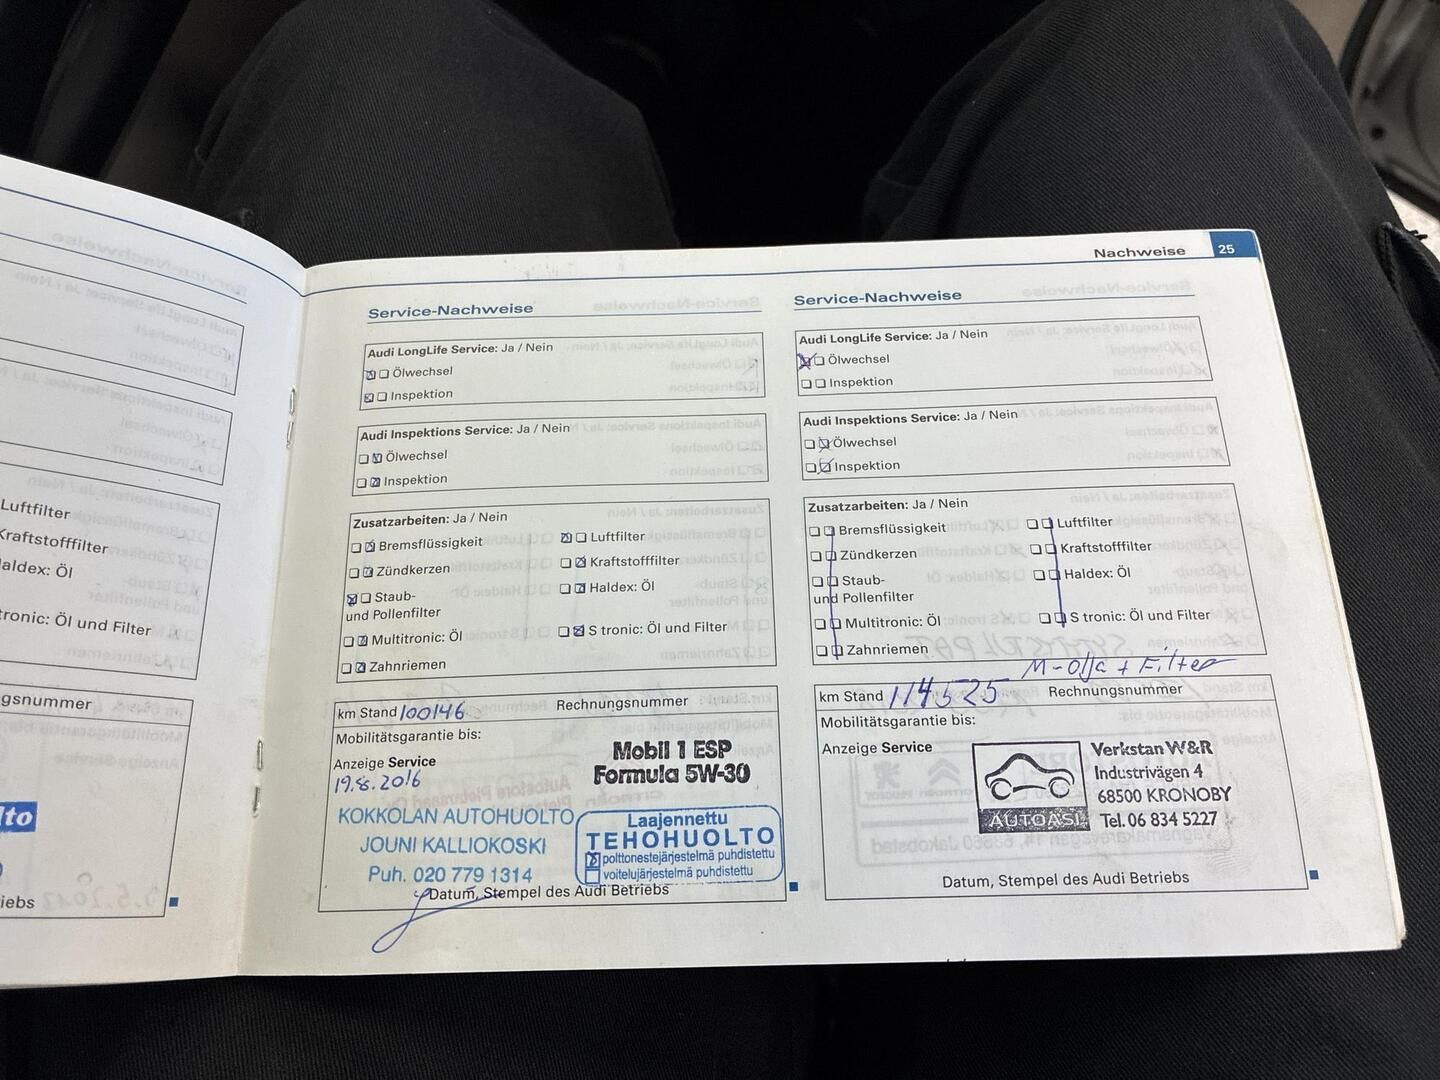 Nachweise 25
Luftfilter
Kraftstofffilter
Haldex: Öl
S tronic: Öl und Filter
Rechnungsnummer
Service-Nachweise
Audi LongLife Service: Ja / Nein
Ölwechsel
Inspektion
Audi Inspektions Service: Ja / Nein
Ölwechsel
Inspektion
Zusatzarbeiten: Ja / Nein
Bremsflüssigkeit
Luftfilter
Zündkerzen
Kraftstofffilter
Staub-
und Pollenfilter
Haldex: Öl
Multitronic: Öl
S tronic: Öl und Filter
Zahnriemen
km Stand 100146 Rechnungsnummer
Mobilitätsgarantie bis:
Anzeige Service
19.8.2016
Mobil 1 ESP
Formula 5W-30
KOKKOLAN AUTOHUOLTO
JOUNI KALLIOKOSKI
Puh. 020 779 1314
Laajennettu
TEHOHUOLTO
polttonestejärjestelmä puhdistettu
voitelujärjestelmä puhdistettu
Datum, Stempel des Audi Betriebs
Service-Nachweise
Audi LongLife Service: Ja / Nein
Ölwechsel
Inspektion
Audi Inspektions Service: Ja / Nein
Ölwechsel
Inspektion
Zusatzarbeiten: Ja / Nein
Bremsflüssigkeit
Luftfilter
Zündkerzen
Kraftstofffilter
Staub-
und Pollenfilter
Haldex: Öl
Multitronic: Öl
S tronic: Öl und Filter
Zahnriemen
M-Olja + Filter
km Stand 114525 Rechnungsnummer
Mobilitätsgarantie bis:
Anzeige Service
AUTOASI
Verkstan W&R
Industrivägen 4
68500 KRONOBY
Tel. 06 834 5227
Datum, Stempel des Audi Betriebs